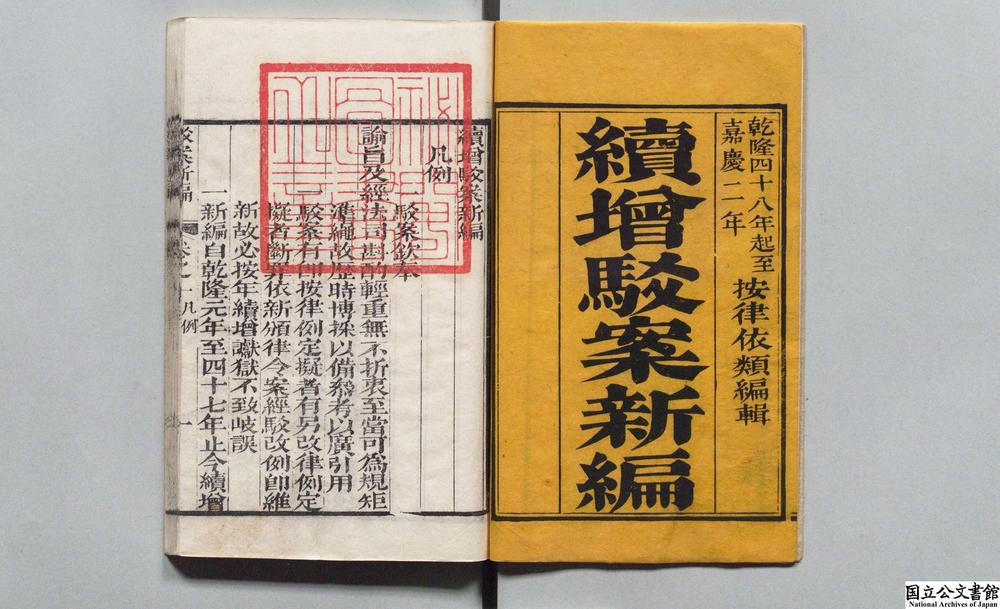 乾隆四十八年起至
嘉慶二年
按律依類編輯
續增駁案新編
續增駁案新編
凡例
一駁案欽奉
諭旨及經法司斟酌輕重無不折衷至當可為規矩
準繩故歷時博採以備叅考以廣引用
駁案有卽按律例定擬者有另改律例定
擬者斷算依新頒律令案經駁改例卽維
新故必按年續增讞獄不致岐誤
一新編自乾隆元年至四十七年止今續增
駁案新編 卷之一 凡例 一
国立公文書館
National Archives of Japan